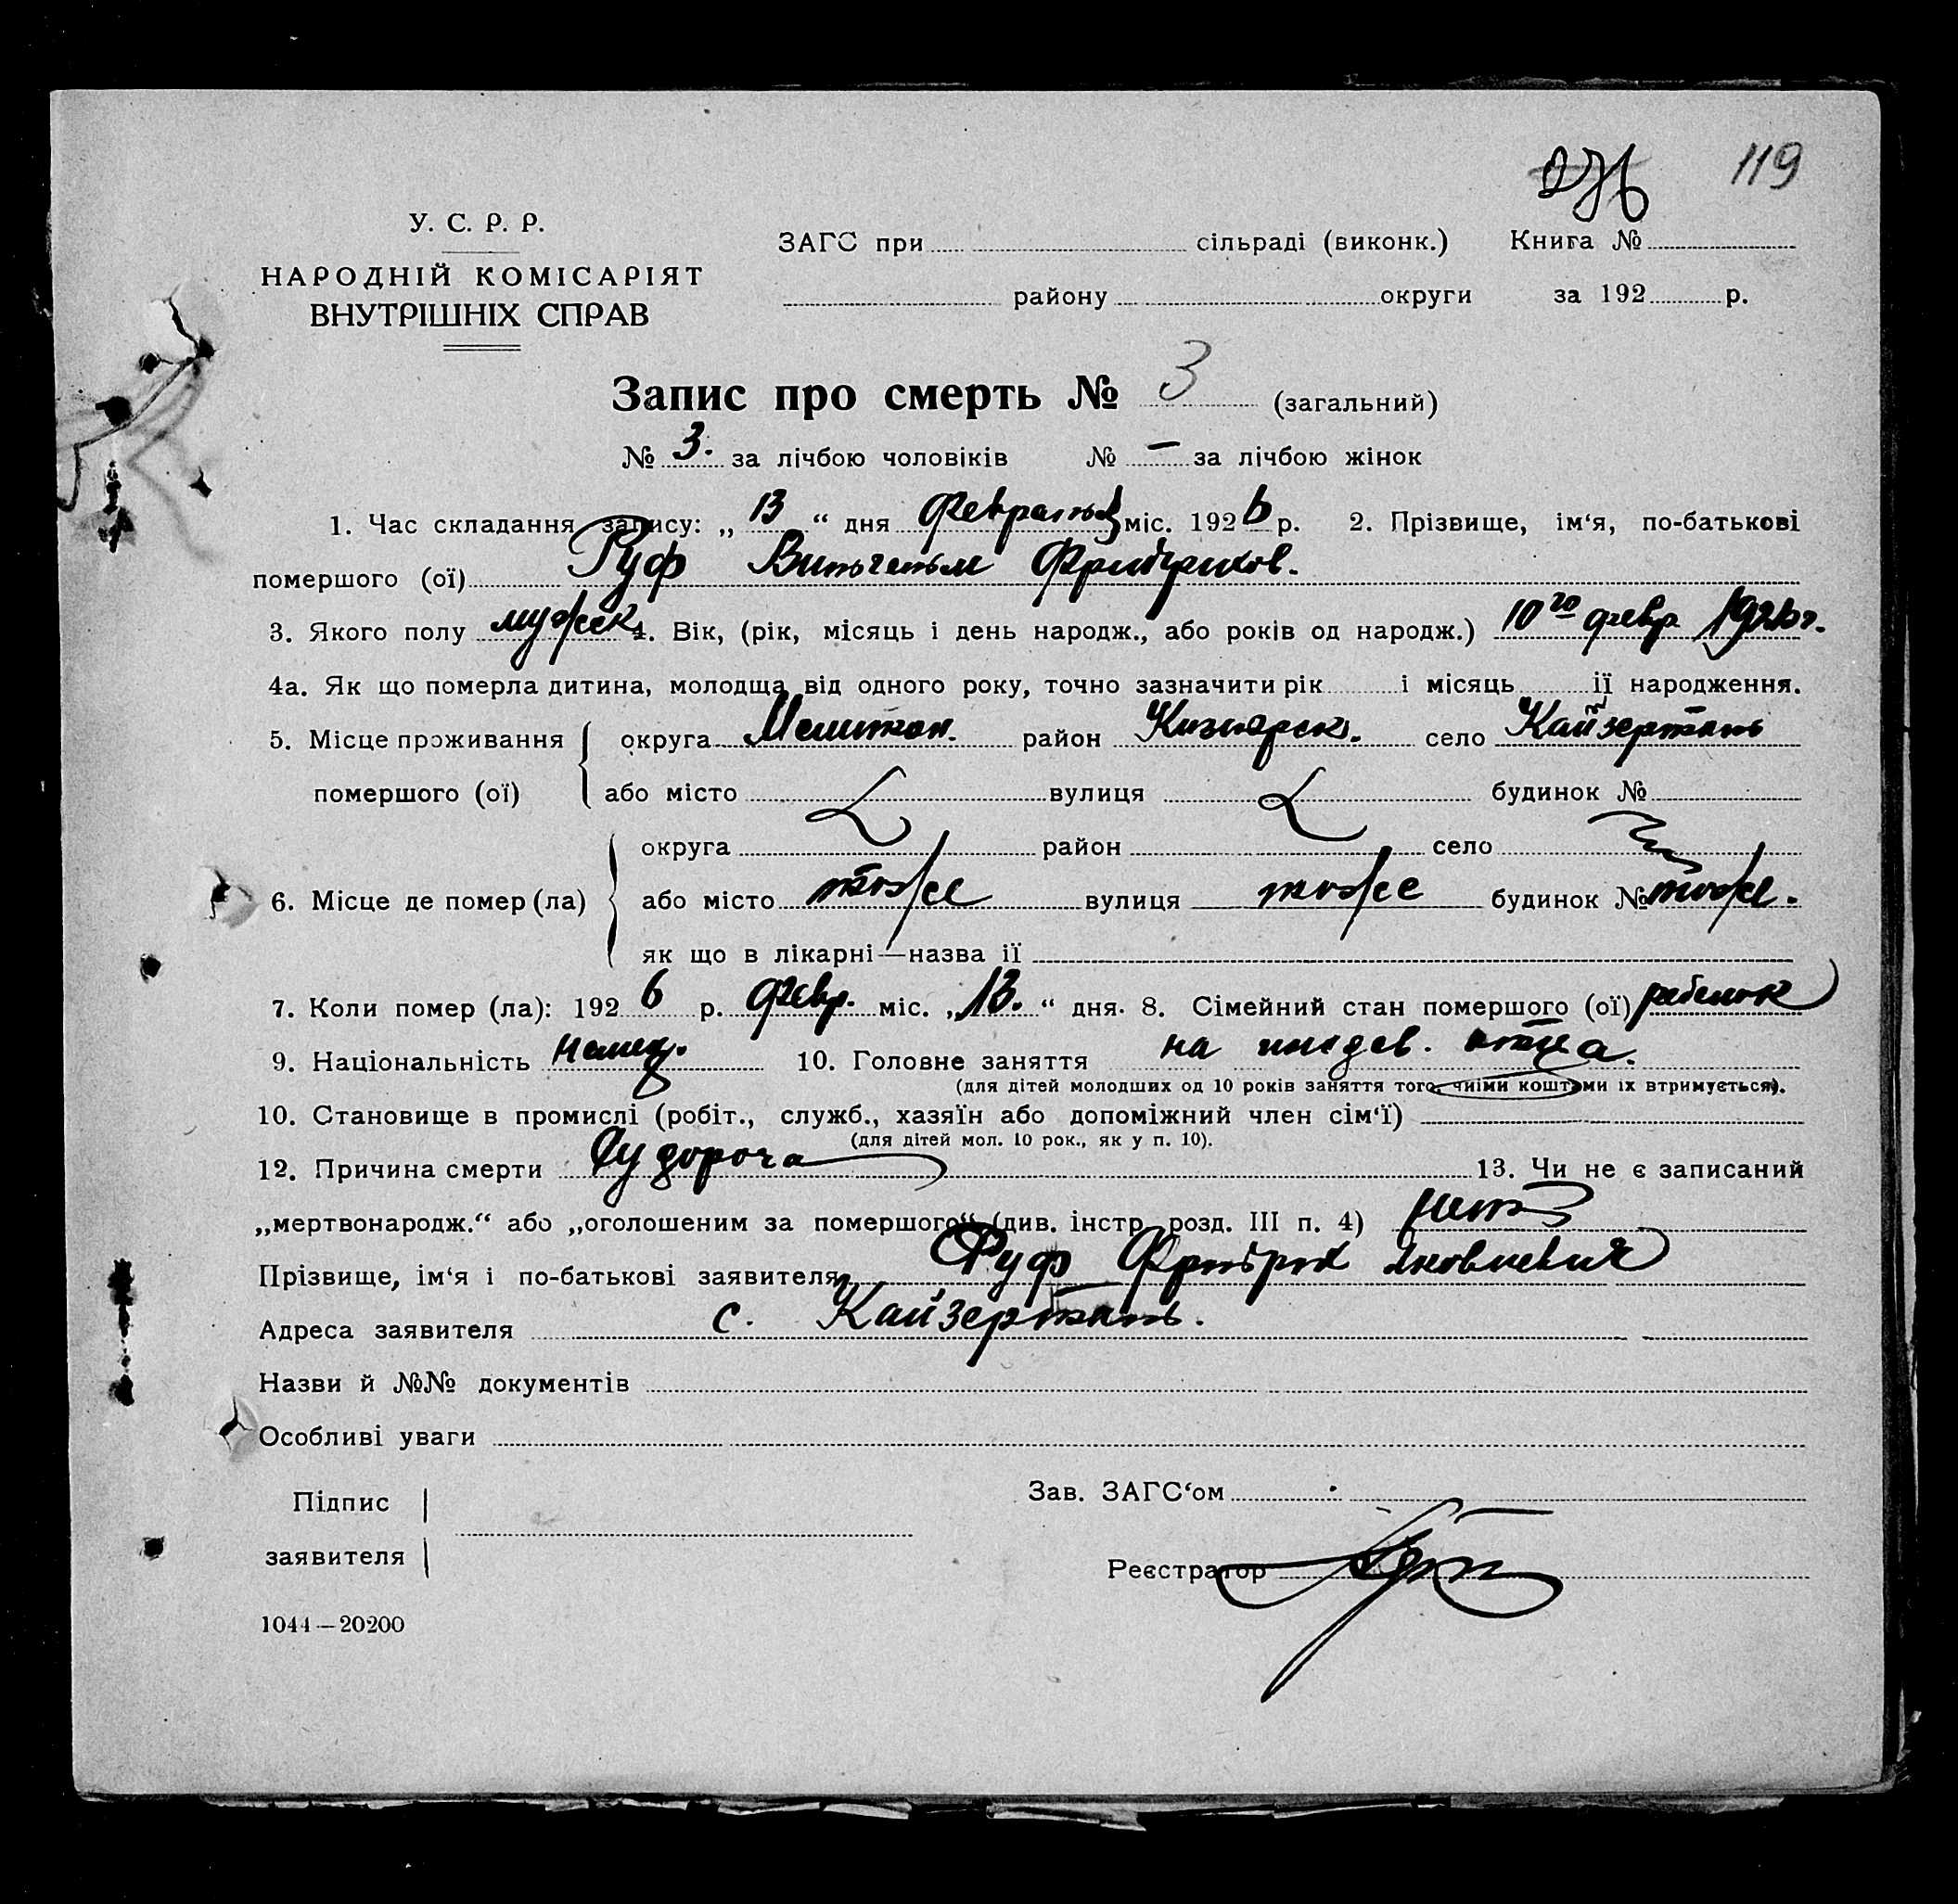 276 119
У. С. Р. Р.
НАРОДНІЙ КОМІСАРІЯТ
ВНУТРІШНІХ СПРАВ
ЗАГС при сільраді (виконк.) Книга №
району округи за 192 р.
Запис про смерть № 3 (загальний)
№ 3. за лічбою чоловіків № — за лічбою жінок
1. Час складання запису: „ 13 “ дня февраля міс. 1926 р. 2. Прізвище, ім‘я, по-батькові
помершого (ої) Руф Вильгельм Фридрихов.
3. Якого полу мужск. 4. Вік, (рік, місяць і день народж., або років од народж.) 10го февр. 1926 г.
4а. Як що померла дитина, молодща від одного року, точно зазначити рік і місяць її народження.
5. Місце проживання округа Мелитоп. район Кизиярск. село Кайзерталь
помершого (ої) або місто вулиця будинок №
округа район село
6. Місце де помер (ла) або місто тоже вулиця тоже будинок № тоже.
як що в лікарні—назва її
7. Коли помер (ла): 1926 р. февр. міс. „13.“ дня. 8. Сімейний стан помершого (ої) ребенок
9. Національність немец. 10. Головне заняття на иждев. отца.
(для дітей молодших од 10 років заняття того, чиїми коштами їх втримується).
10. Становище в промислі (робіт., служб., хазяїн або допоміжний член сім‘ї)
(для дітей мол. 10 рок., як у п. 10).
12. Причина смерти Судорога 13. Чи не є записаний
„мертвонародж.“ або „оголошеним за помершого“ (див. інстр. розд. III п. 4) нет
Прізвище, ім‘я і по-батькові заявителя Руф Фридрих Яковлевич
Адреса заявителя с. Кайзерталь.
Назви й №№ документів
Особливі уваги
Підпис
заявителя
Зав. ЗАГС‘ом
Реєстратор
1044—20200